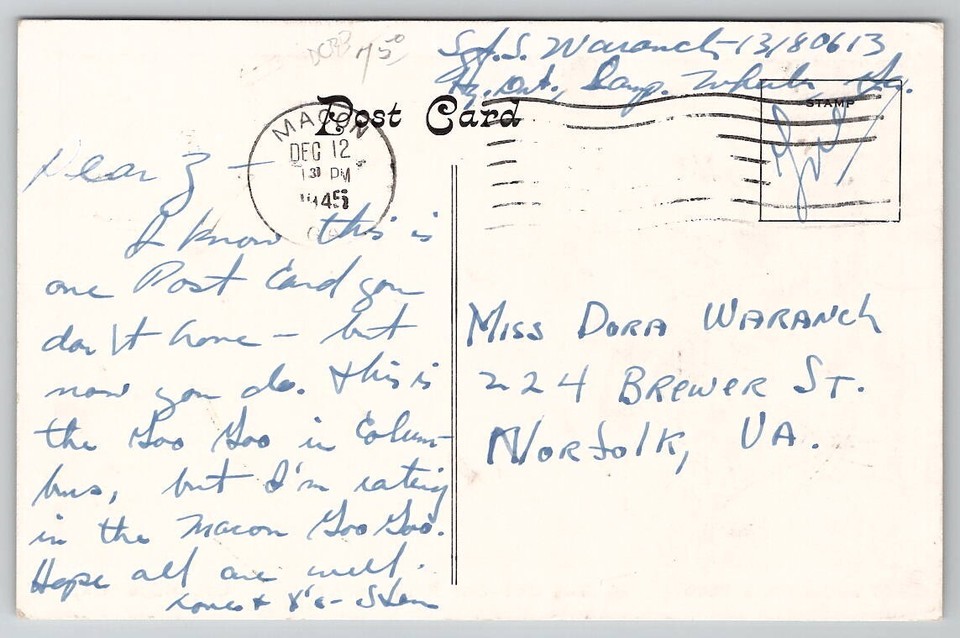 7.50
Sgt. S. Waranch-13180613
Hq. Det., Camp Wheeler, Ga.
STAMP
Free
Post Card
MACON
DEC 12
PM
1945
GA.
Dear Z —
I know this is
one Post Card you
don't have — but
now you do. This is
the Goo Goo in Colum-
bus, but I'm eating
in the Macon Goo Goo.
Hope all are well.
Love + X's - Stan
Miss Dora Waranch
224 Brewer St.
Norfolk, Va.